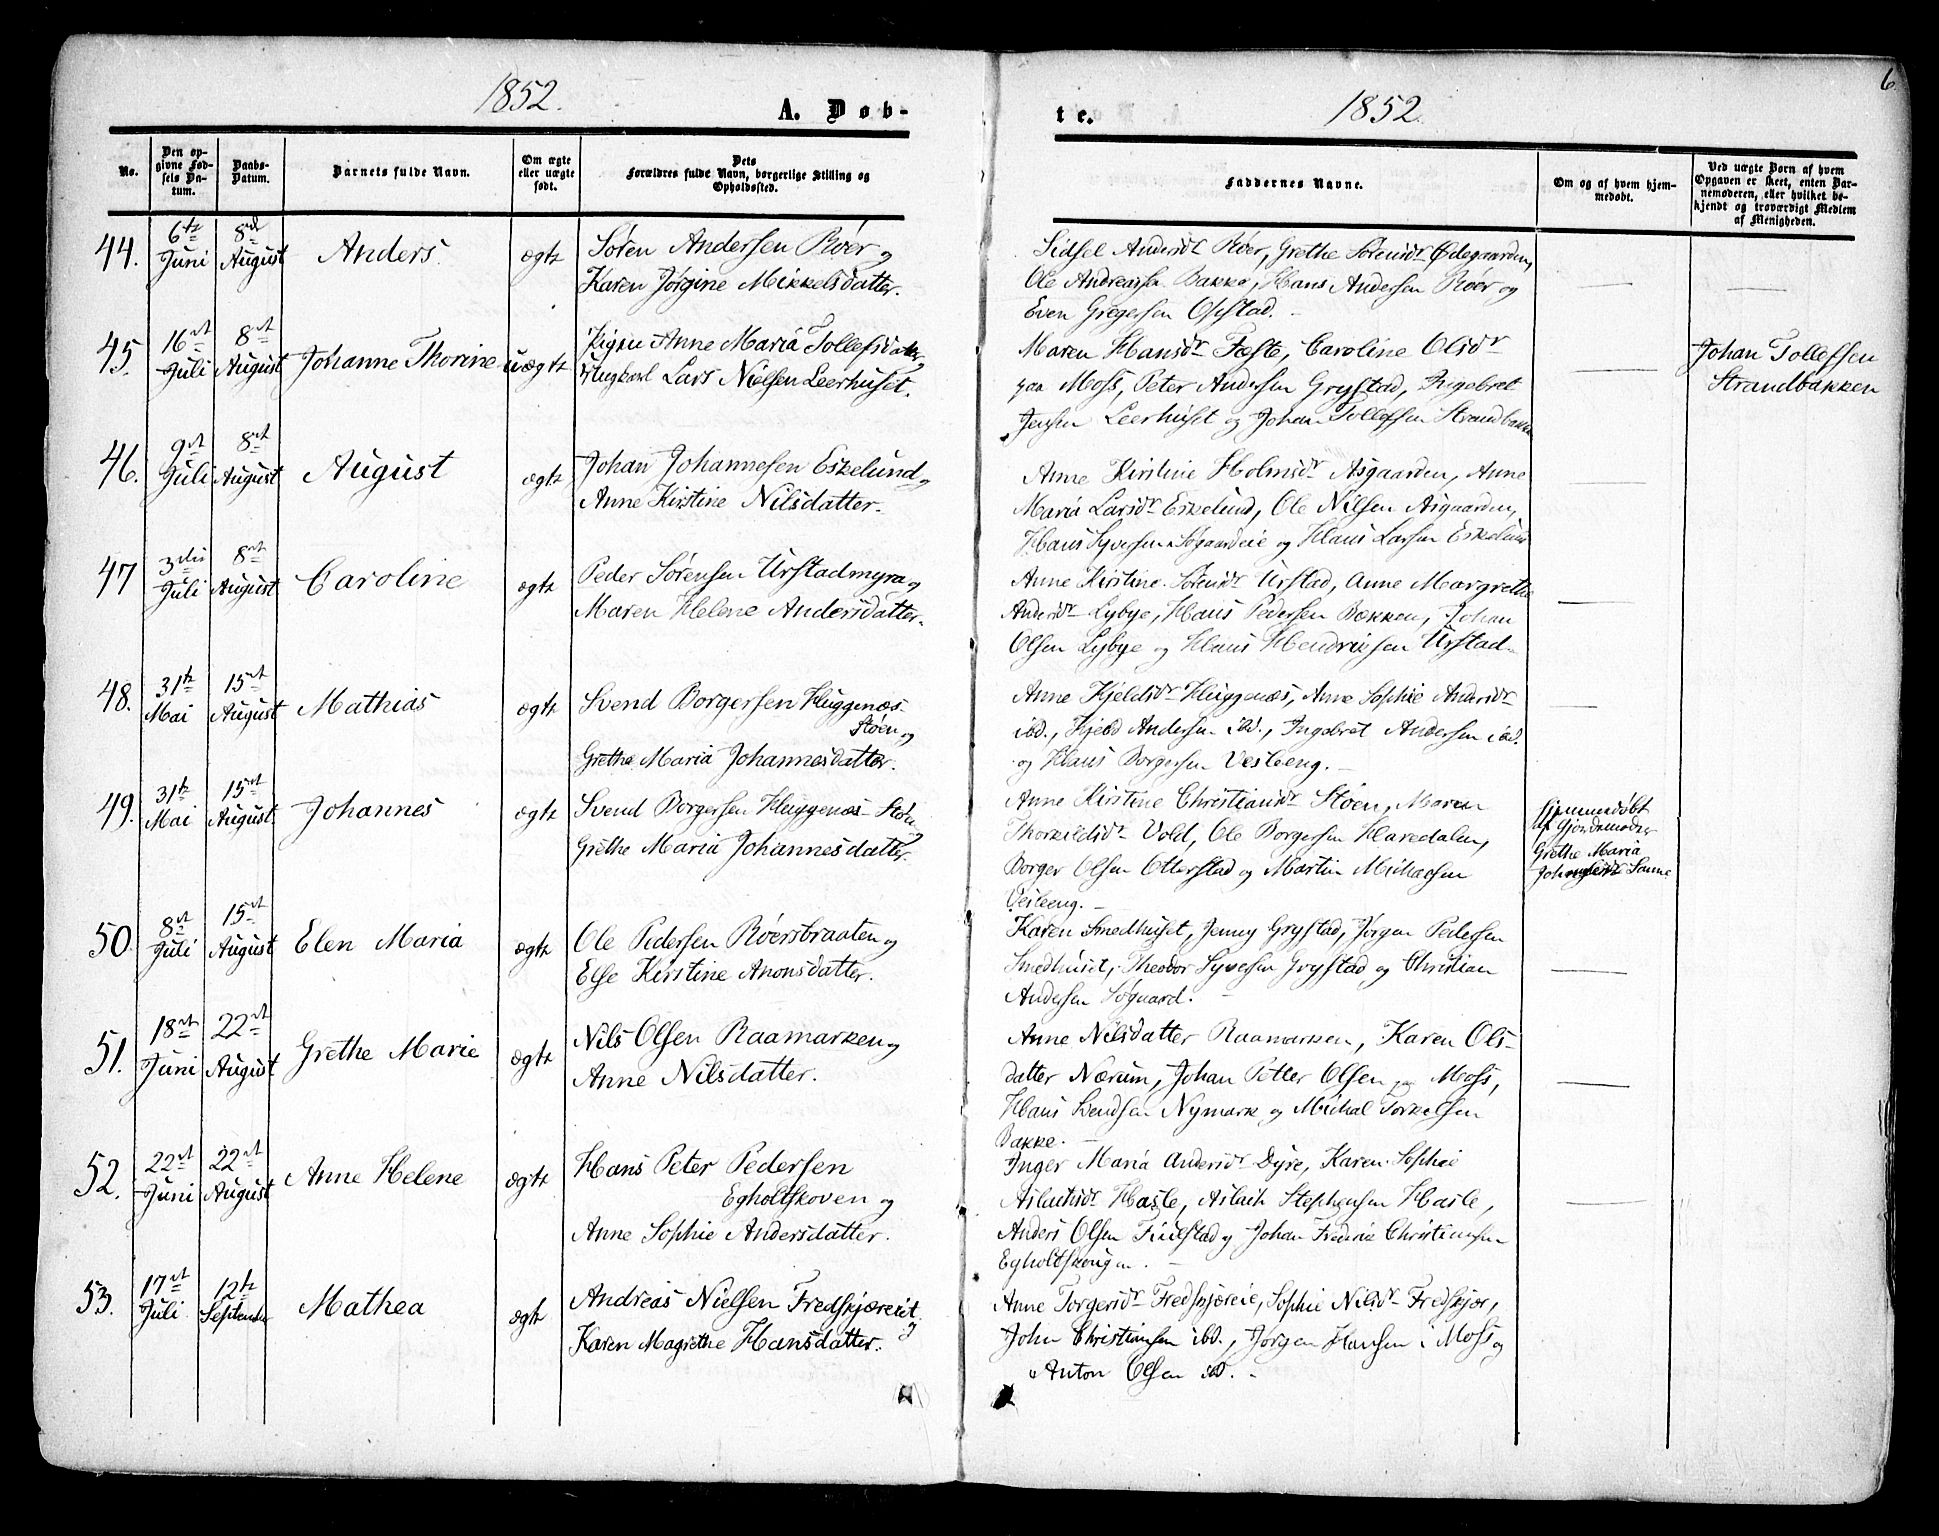 1852.
A. Døb-
No.
Den op-
givne Fød-
sels Da-
tum.
Daabs-
Datum.
Barnets fulde Navn.
Om ægte
eller uægte
født.
Dets
Forældres fulde Navn, borgerlige Stilling og
Opholdssted.
44. 6te Juni 8de August Anders. ægte
Søren Andersen Røer og
Karen Jørgine Mikkelsdatter.
45. 16de Juli 8de August Johanne Thorine uægte
Pigen Anne Maria Tollefsdatter,
Ungkarl Lars Nielsen Leerhuset.
46. 9de Juli 8de August August ægte
Johan Johannesen Eskelund og
Anne Kirstine Nilsdatter.
47 3die Juli 8de August Caroline ægte
Peder Sørensen Urstadmyra og
Maren Helene Andersdatter.
48. 31te Mai 15de August Mathias ægte
Svend Borgersen Huggenæs-
Støen og
Grethe Maria Johannesdatter.
49. 31te Mai 15de August. Johannes ægte
Svend Borgersen Huggenæs-Støen
Grethe Maria Johannesdatter.
50. 8de Juli 15de August Elen Maria ægte
Ole Pedersen Røersbraaten og
Else Kirstine Anonsdatter.
51. 18de Juni 22de August Grethe Marie ægte
Nils Olsen Raamarken og
Anne Nilsdatter.
52. 22de Juni 22de August Anne Helene ægte
Hans Peter Pedersen
Egholtskoven og
Anne Sophie Andersdatter.
53. 17de Juli 12te September Mathea ægte
Andreas Nielsen Fredskjæreiet
og
Karen Magrethe Hansdatter.
6
te.
1852.
Faddernes Navne.
Om og af hvem hjem-
medøbt.
Ved uægte Børn af hvem
Opgaven er skeet, enten Bar-
nemoderen, eller hvilket be-
kjendt og troværdigt Medlem
af Menigheden.
Sidsel Andersdr Røer, Grethe Sørensdr Ødegaarden,
Ole Andreassen Bakke, Hans Andersen Røer og
Even Gregersen Opstad.
Maren Hansdr Feste, Caroline Olsdr
paa Moss, Peter Andersen Grystad, Ingebret
Jensen Leerhuset og Johan Tollefsen Strandbakken
Johan Tollefsen
Strandbakken
Anne Kirstine Holmsdr Asgaarden, Anne
Maria Larsdr Eskelund, Ole Nilsen Asgaarden,
Hans Syversen Søgaardeie og Hans Larsen Eskelund
Anne Kirstine Sørensdr Urstad, Anne Margrethe
Andersdr Lybye, Hans Pedersen Bakken, Johan
Olsen Lybye og Hans Hendriksen Urstad.
Anne Kjeldsdr Huggenæs, Anne Sophie Andersdr
ibd., Kjeld Andersen ibd., Ingebret Andersen ibd.
og Hans Borgersen Vesleeng.
Anne Kirstine Christiansdr Støen, Maren
Thorkildsdr Vold, Ole Borgersen Haredalen,
Borger Olsen Otterstad og Martin Michaelsen
Vesleeng.
Hjemmedøbt
af Gjordemoder
Grethe Maria
Sanne
Karen Smedhuset, Jenny Grystad, Jørgen Pedersen
Smedhuset, Theodor Syversen Grystad og Christian
Andersen Søgaard.
Anne Nilsdatter Raamarken, Karen Ols-
datter Nærum, Johan Petter Olsen paa Moss,
Hans Svendsen Nymark og Michal Torkelsen
Bakke.
Inger Maria Andersdr Dyre, Karen Sophie
Aslaksdr Hasle, Aslach Stephensen Hasle,
Anders Olsen Fuglestad og Johan Frederic Christiansen
Egholtskougen.
Anne Torgersdr Fredskjæreie, Sophie Nilsdr Fredskjær,
John Christiansen ibd., Jørgen Hansen i Moss og
Anton Olsen ibd.